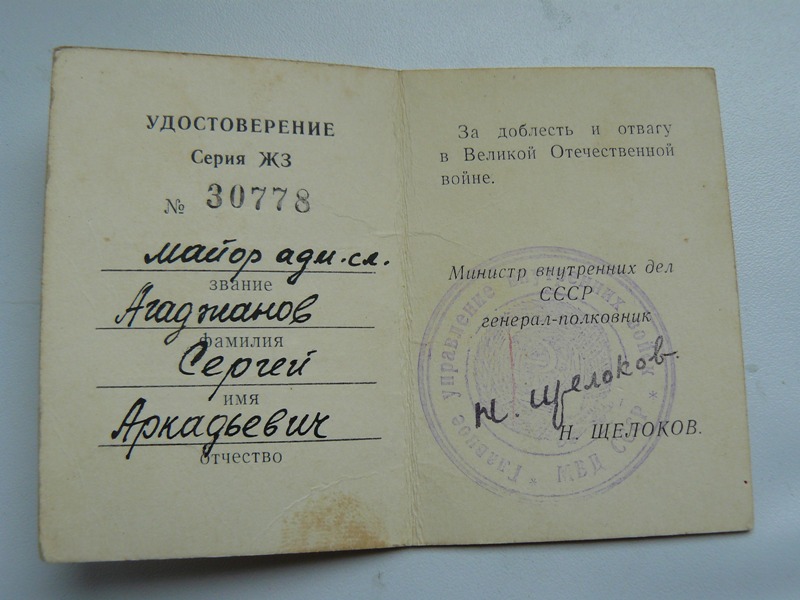 УДОСТОВЕРЕНИЕ
Серия ЖЗ
№ 30778
майор адм.-сл.
звание
Агаджанов
фамилия
Сергей
имя
Аркадьевич
отчество
За доблесть и отвагу
в Великой Отечественной
войне.
Министр внутренних дел
СССР
генерал-полковник
Н. Щелоков.
Н. ЩЕЛОКОВ.
Главное управление внутренних войск
* МВД СССР *